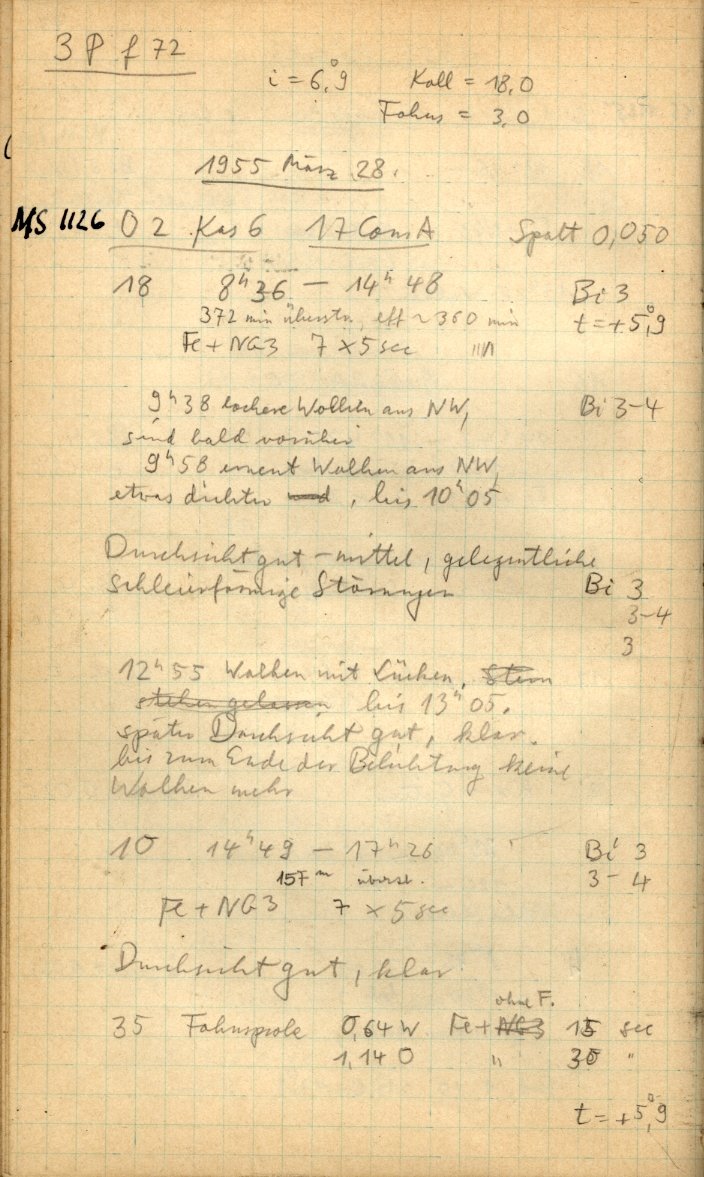 3 P f 72
i = 6,°9 Koll = 18,0
Fokus = 3,0
1955 März 28.
MS 1126 O 2 Kas 6 17 Com A Spalt 0,050
18 8ʰ36 – 14ʰ48 Bi 3
372 min überstr. eff ~ 360 min t = +5,°9
Fe + NG3 7 x 5 sec
9ʰ38 lockere Wolken aus NW, Bi 3-4
sind bald vorüber
9ʰ58 erneut Wolken aus NW,
etwas dichter und, bis 10ʰ05
Durchsicht gut – mittel, gelegentliche
schleierförmige Störungen Bi 3
3-4
3
12ʰ55 Wolken mit Lücken, Stern
stehen gelassen bis 13ʰ05.
später Durchsicht gut, klar.
bis zum Ende der Belichtung keine
Wolken mehr
10 14ʰ49 – 17ʰ26 Bi 3
157ᵐ überst. 3-4
Fe + NG3 7 x 5 sec
Durchsicht gut, klar
ohne F.
35 Fokusprobe 0,64 W Fe + NG3 15 sec
1,14 O " 30 "
t = +5,°9